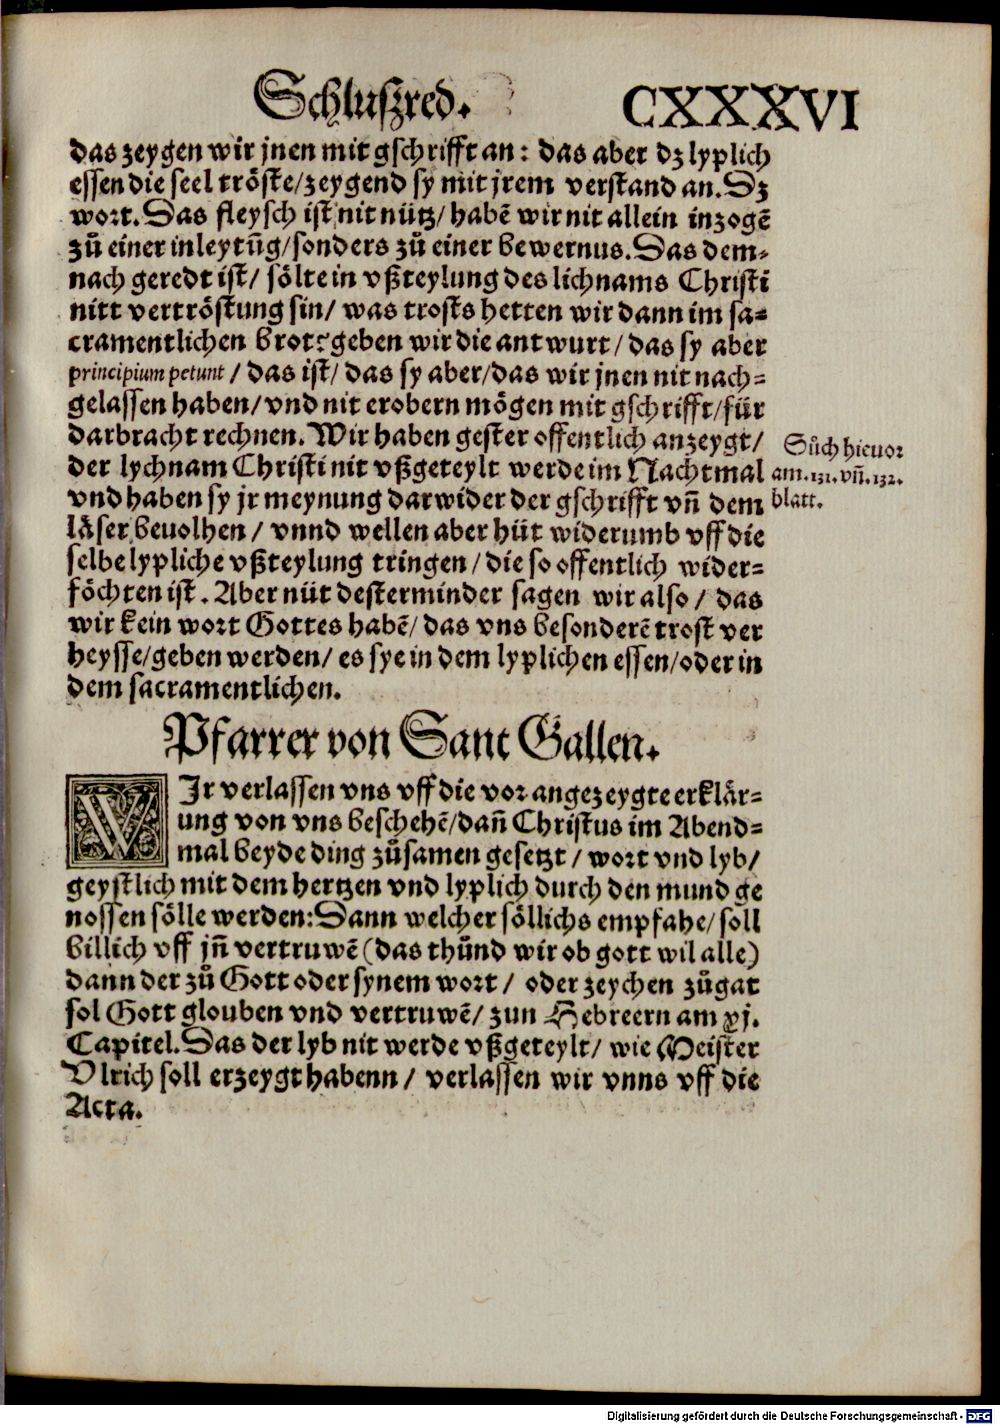 Schluſzred.
CXXXVI
das zeygen wir jnen mit gſchrifft an: das aber dz lyplich
eſſen die ſeel tröſte/zeygend ſy mit jrem verſtand an. Dz
wort. Das fleyſch iſt nit nütz/ habẽ wir nit allein inzogẽ
zů einer inleytũg/ſonders zů einer bewernus. Das dem-
nach geredt iſt/ ſölte in vßteylung des lichnams Chriſti
nitt vertröſtung ſin/ was troſts hetten wir dann im ſa-
cramentlichen brot: geben wir die antwurt/ das ſy aber
principium petunt / das iſt/ das ſy aber/das wir jnen nit nach-
gelaſſen haben/ vnd nit erobern mögen mit gſchrifft/für
darbracht rechnen. Wir haben geſter offentlich anzeygt/
der lychnam Chriſti nit vßgeteylt werde im Nachtmal
vnd haben ſy jr meynung darwider der gſchrifft vñ dem
läſer beuolhen/ vnnd wellen aber hüt widerumb vff die
ſelbe lypliche vßteylung tringen/ die ſo offentlich wider-
föchten iſt. Aber nüt deſterminder ſagen wir alſo/ das
wir kein wort Gottes habẽ/ das vns beſonderẽ troſt ver
heyſſe/geben werden/ es ſye in dem lyplichen eſſen/oder in
dem ſacramentlichen.
Sůch hieuor
am. 131. vñ. 132.
blatt.
Pfarrer von Sant Gallen.
WJr verlaſſen vns vff die vor angezeygte erklär-
ung von vns beſchehẽ/dañ Chriſtus im Abend-
mal beyde ding zůſamen geſetzt/ wort vnd lyb/
geyſtlich mit dem hertzen vnd lyplich durch den mund ge
noſſen ſölle werden: Dann welcher ſöllichs empfahe/ ſoll
billich vff jñ vertruwẽ (das thůnd wir ob gott wil alle)
dann der zů Gott oder ſynem wort/ oder zeychen zůgat
ſol Gott glouben vnd vertruwẽ/ zun Hebreern am xj.
Capitel. Das der lyb nit werde vßgeteylt/ wie Meiſter
Vlrich ſoll erzeygt habenn/ verlaſſen wir vnns vff die
Acta.
Digitalisierung gefördert durch die Deutsche Forschungsgemeinschaft - DFG